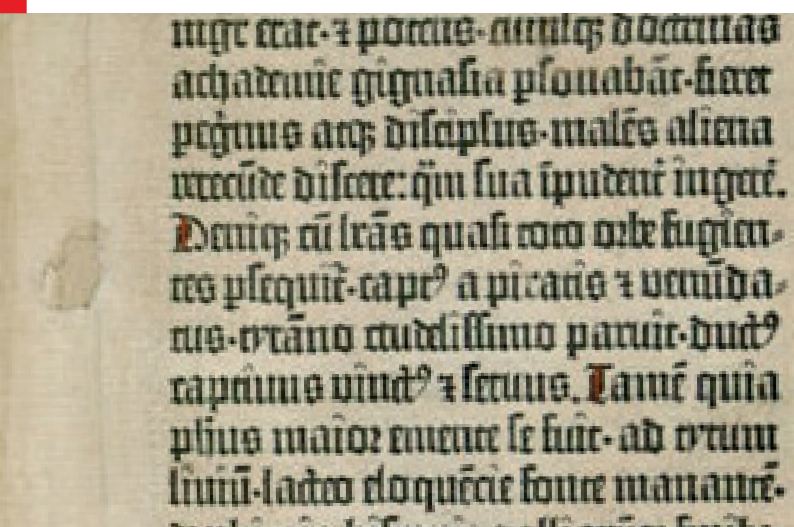 mgr̄ erat·⁊ potens·cuiusqꝫ doctrinas
achademie gignasia ꝑsonabāt·fieret
peg̊rinus atqꝫ discipulus·malēs aliena
verecūde discere: q̄m sua īpudent̄ ingerē.
Deniqꝫ cū lr̄as quasi toto orbe fugien-
tes ꝑsequit̄·capt⁹ a piratis ⁊ venūda-
tus·tyrāno crudelissimo paruit·duct⁹
captiuus vinct⁹ ⁊ seruus. Tamē quia
ph̄us maior emente se fuit·ad tytum
liuiū·lacteo eloquēcie fonte manantē·